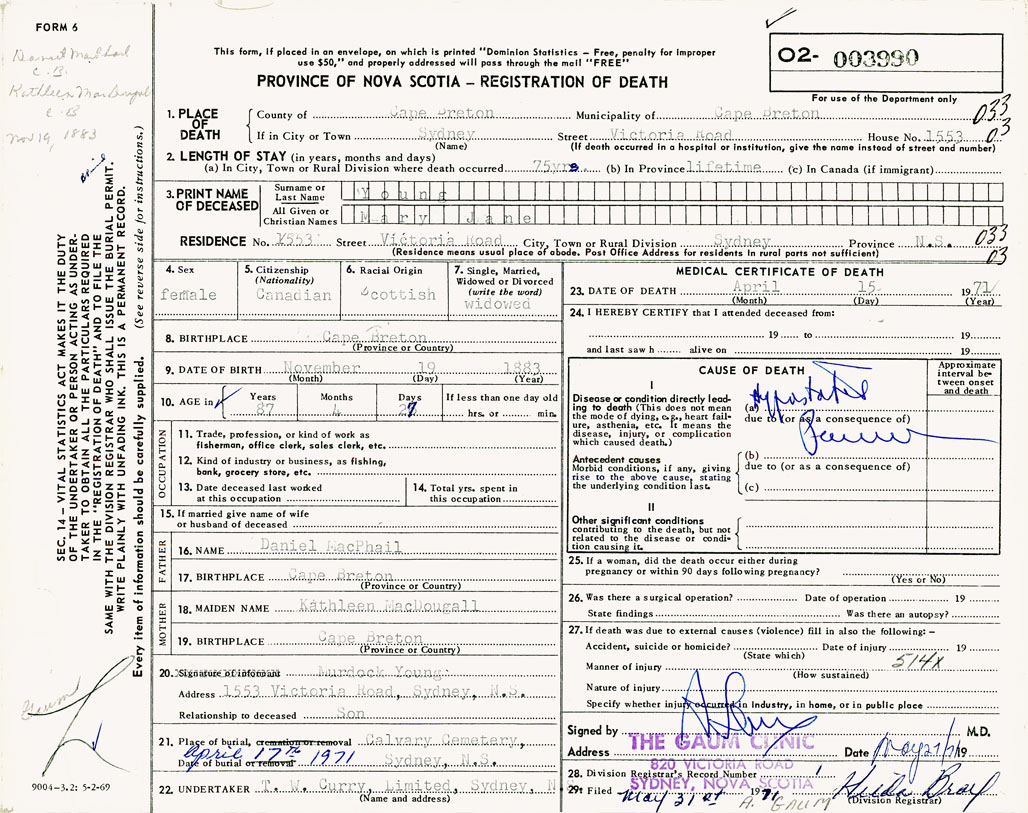 FORM 6
C. B.
Kathleen MacDougall
C B
Nov 19, 1883
This form, if placed in an envelope, on which is printed "Dominion Statistics – Free, penalty for improper
use $50," and properly addressed will pass through the mail "FREE"
PROVINCE OF NOVA SCOTIA – REGISTRATION OF DEATH
O2- 003990
For use of the Department only
1. PLACE OF DEATH
County of Cape Breton Municipality of Cape Breton 033
If in City or Town Sydney Street Victoria Road House No. 1553 03
(Name) (If death occurred in a hospital or institution, give the name instead of street and number)
2. LENGTH OF STAY (in years, months and days)
(a) In City, Town or Rural Division where death occurred 75yrs. (b) In Province lifetime (c) In Canada (if immigrant)
3. PRINT NAME OF DECEASED
Surname or Last Name Young
All Given or Christian Names Mary Jane
RESIDENCE No. 1553 Street Victoria Road City, Town or Rural Division Sydney Province N.S. 033
(Residence means usual place of abode. Post Office Address for residents in rural parts not sufficient) 03
4. Sex
female
5. Citizenship
(Nationality)
Canadian
6. Racial Origin
Scottish
7. Single, Married,
Widowed or Divorced
(write the word)
widowed
8. BIRTHPLACE Cape Breton
(Province or Country)
9. DATE OF BIRTH November 19 1883
(Month) (Day) (Year)
10. AGE in Years Months Days If less than one day old
87 4 27 hrs. or min.
OCCUPATION
11. Trade, profession, or kind of work as
fisherman, office clerk, sales clerk, etc.
12. Kind of industry or business, as fishing,
bank, grocery store, etc.
13. Date deceased last worked
at this occupation
14. Total yrs. spent in
this occupation
15. If married give name of wife
or husband of deceased
FATHER
16. NAME Daniel MacPhail
17. BIRTHPLACE Cape Breton
(Province or Country)
MOTHER
18. MAIDEN NAME Kathleen MacDougall
19. BIRTHPLACE Cape Breton
(Province or Country)
20. Signature of informant Murdock Young
Address 1553 Victoria Road, Sydney, N.S.
Relationship to deceased Son
21. Place of burial, cremation or removal Calvary Cemetery,
Date of burial or removal April 17th 1971 Sydney, N.S.
22. UNDERTAKER T. W. Curry, Limited, Sydney, N
(Name and address)
MEDICAL CERTIFICATE OF DEATH
23. DATE OF DEATH April 15 1971
(Month) (Day) (Year)
24. I HEREBY CERTIFY that I attended deceased from:
19 to 19
and last saw h alive on 19
CAUSE OF DEATH
Approximate interval between onset and death
I
Disease or condition directly leading to death (This does not
mean the mode of dying, e.g., heart failure, asthenia, etc. It means the
disease, injury, or complication
which caused death.)
(a) Hypostatic
due to (or as a consequence of)
Antecedent causes
Morbid conditions, if any, giving
rise to the above cause, stating
the underlying condition last.
(b)
due to (or as a consequence of)
(c)
II
Other significant conditions
contributing to the death, but not
related to the disease or condition causing it.
25. If a woman, did the death occur either during
pregnancy or within 90 days following pregnancy?
(Yes or No)
26. Was there a surgical operation? Date of operation 19
State findings Was there an autopsy?
27. If death was due to external causes (violence) fill in also the following: –
Accident, suicide or homicide? Date of injury 19
(State which)
Manner of injury 514X
(How sustained)
Nature of injury
Specify whether injury occurred in industry, in home, or in public place
Signed by M.D.
Address THE GAUM CLINIC Date May 27/71 19
820 VICTORIA ROAD
SYDNEY, NOVA SCOTIA
28. Division Registrar's Record Number
29. Filed May 31st 1971
(Division Registrar)
A. GAUM
SEC. 14 – VITAL STATISTICS ACT MAKES IT THE DUTY
OF THE UNDERTAKER OR PERSON ACTING AS UNDERTAKER
TO OBTAIN ALL THE PARTICULARS REQUIRED
IN THE "REGISTRATION OF DEATH" AND TO FILE THE
SAME WITH THE DIVISION REGISTRAR WHO SHALL ISSUE THE BURIAL PERMIT.
WRITE PLAINLY WITH UNFADING INK. THIS IS A PERMANENT RECORD.
Every item of information should be carefully supplied. (See reverse side for instructions.)
Gaum
9004-3.2: 5-2-69